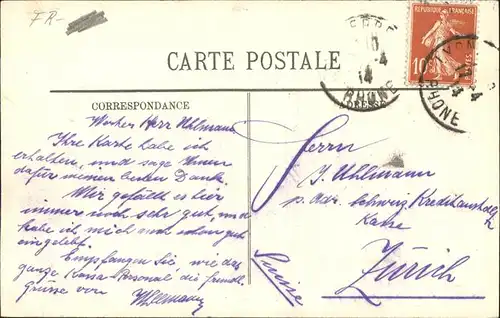 FR-
CARTE POSTALE
CORRESPONDANCE
ADRESSE
REPUBLIQUE FRANÇAISE
10
10-4
14
RHONE
RHONE
Werter Herr Uhlmann
Ihre Karte habe ich
erhalten, und sage Ihnen
dafür meinen besten Dank.
Mir gefällt es hier
immer noch sehr gut, und
habe ich mich nun schon gut
eingelebt.
Empfangen Sie, wie das
ganze Kassa-Personal die freundl.
Grüsse von
Herrn
J. Uhlmann
p. Adr. Schweiz. Kreditanstalt
Kasse
Zürich
Suisse